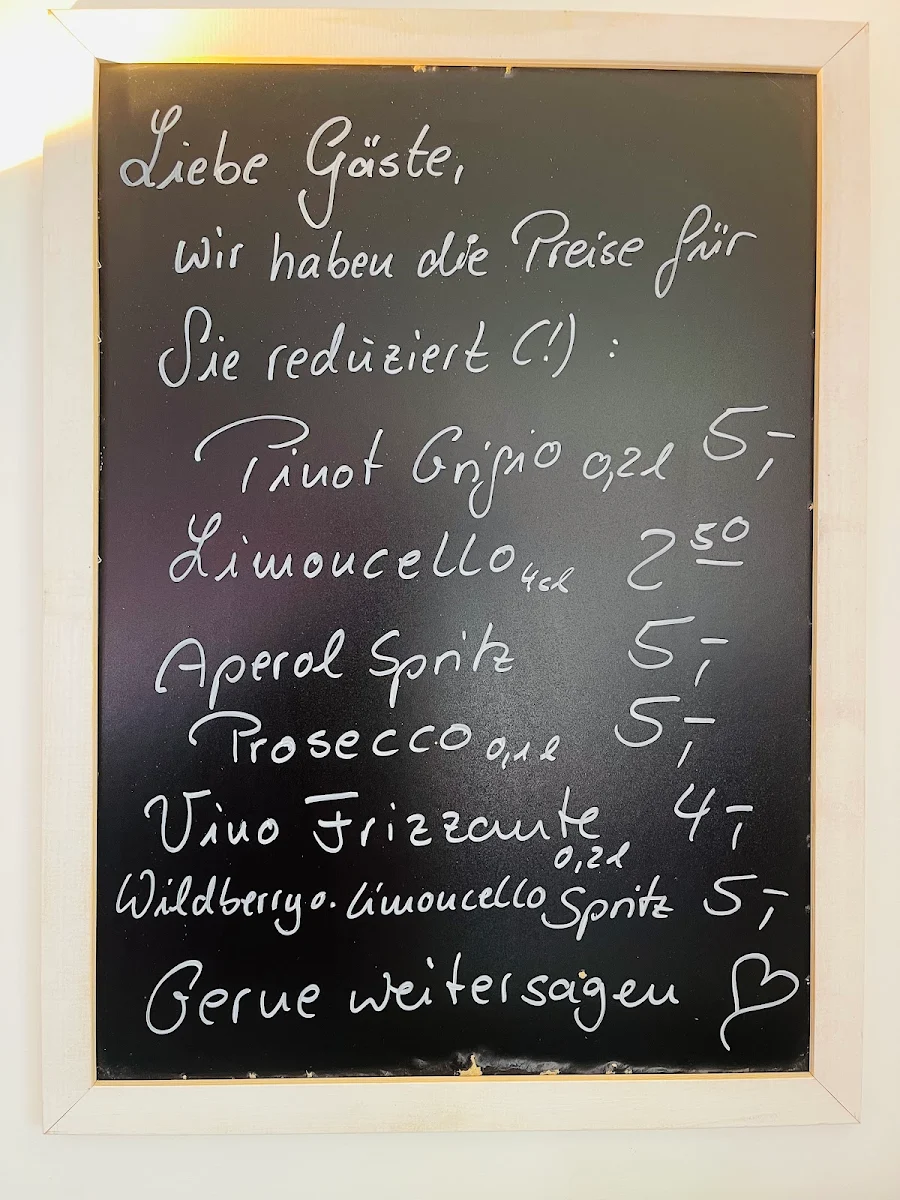 Liebe Gäste,
wir haben die Preise für
Sie reduziert (!) :
Pinot Grigio 0,2l 5,-
Limoncello 4cl 2 50
Aperol Spritz 5,-
Prosecco 0,1 l 5,-
Vino Frizzante 0,2l 4,-
Wildberry o. Limoncello Spritz 5,-
Gerne weitersagen ♡